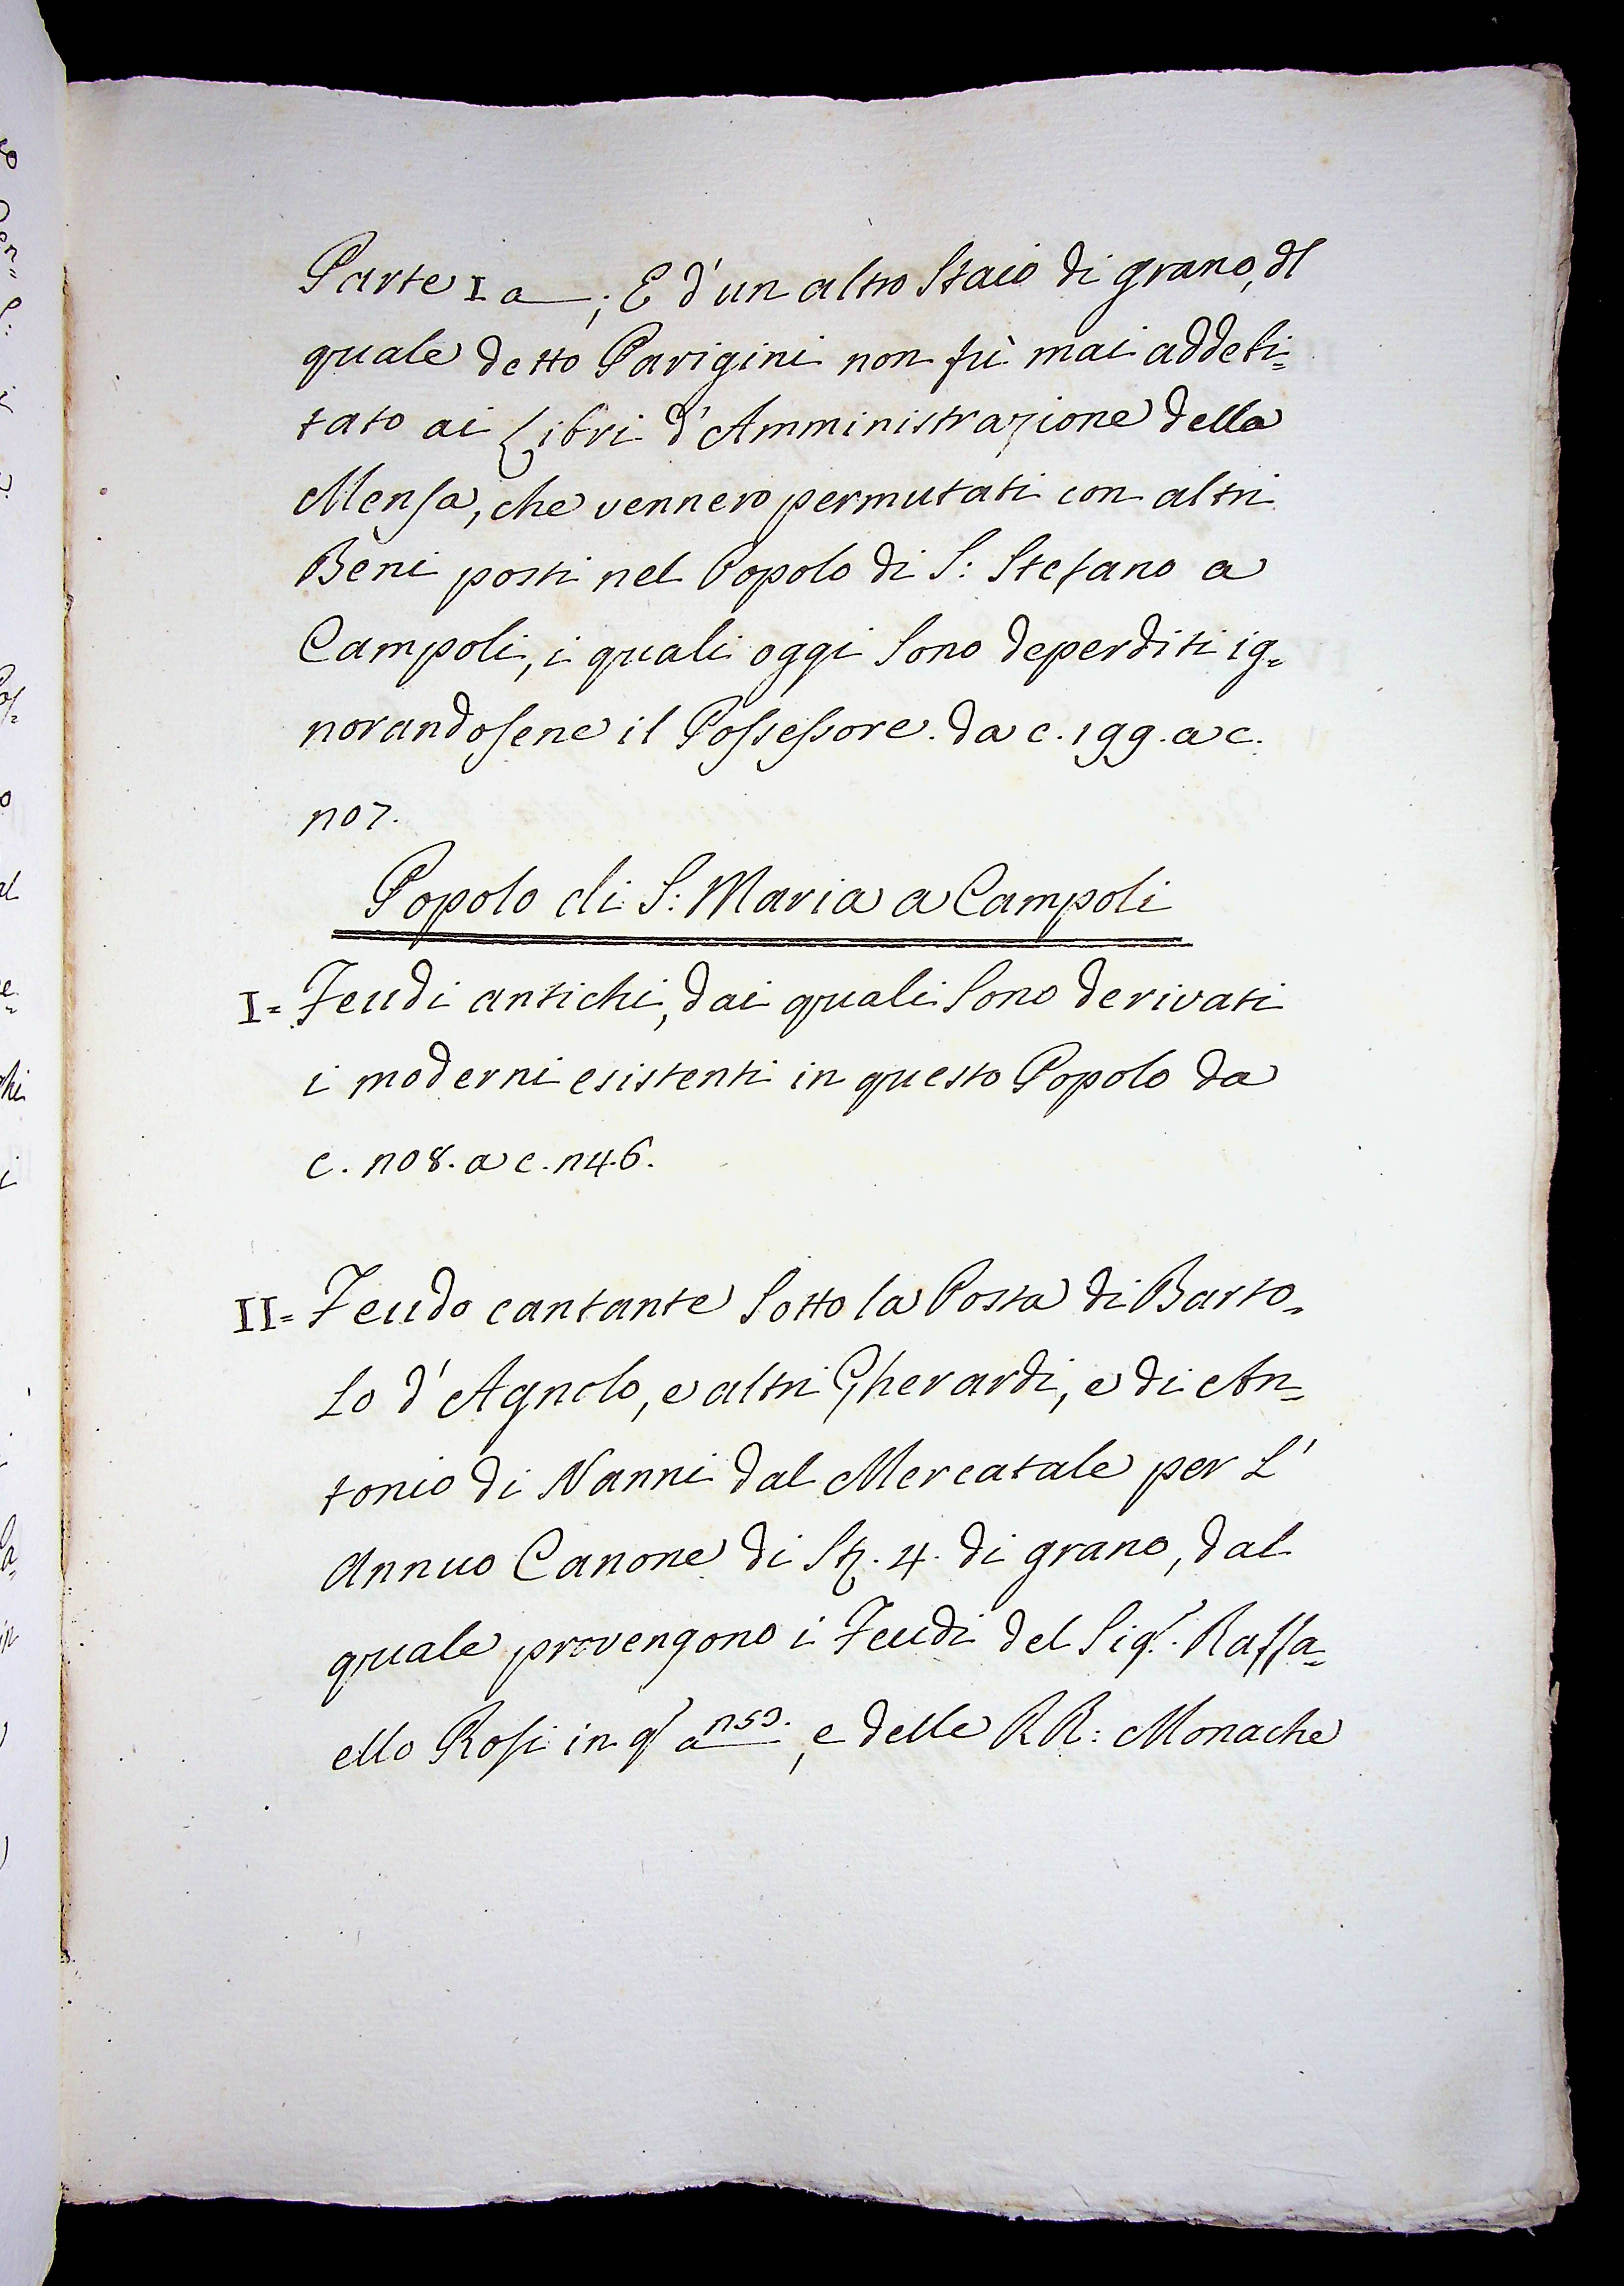 Parte I a ; E d'un altro Staio di grano, dl
quale detto Parigini non fù mai addebi=
tato ai Libri d'Amministrazione della
Mensa, che vennero permutati con altri
Beni posti nel Popolo di S: Stefano a
Campoli, i quali oggi Sono deperditi ig=
norandosene il Possessore. da c. 199. a c.
207.
Popolo di S: Maria a Campoli
I= Feudi antichi, dai quali Sono derivati
i moderni esistenti in questo Popolo da
c. 208. a c. 246.
II= Feudo cantante Sotto la Posta di Barto=
lo d'Agnolo, e altri Gherardi, e di An=
tonio di Nanni dal Mercatale per L'
Annuo Canone di Sta. 4. di grano, dal
quale provengono i Feudi del Sigr. Raffa=
ello Rosi in qo a , e delle RR: Monache